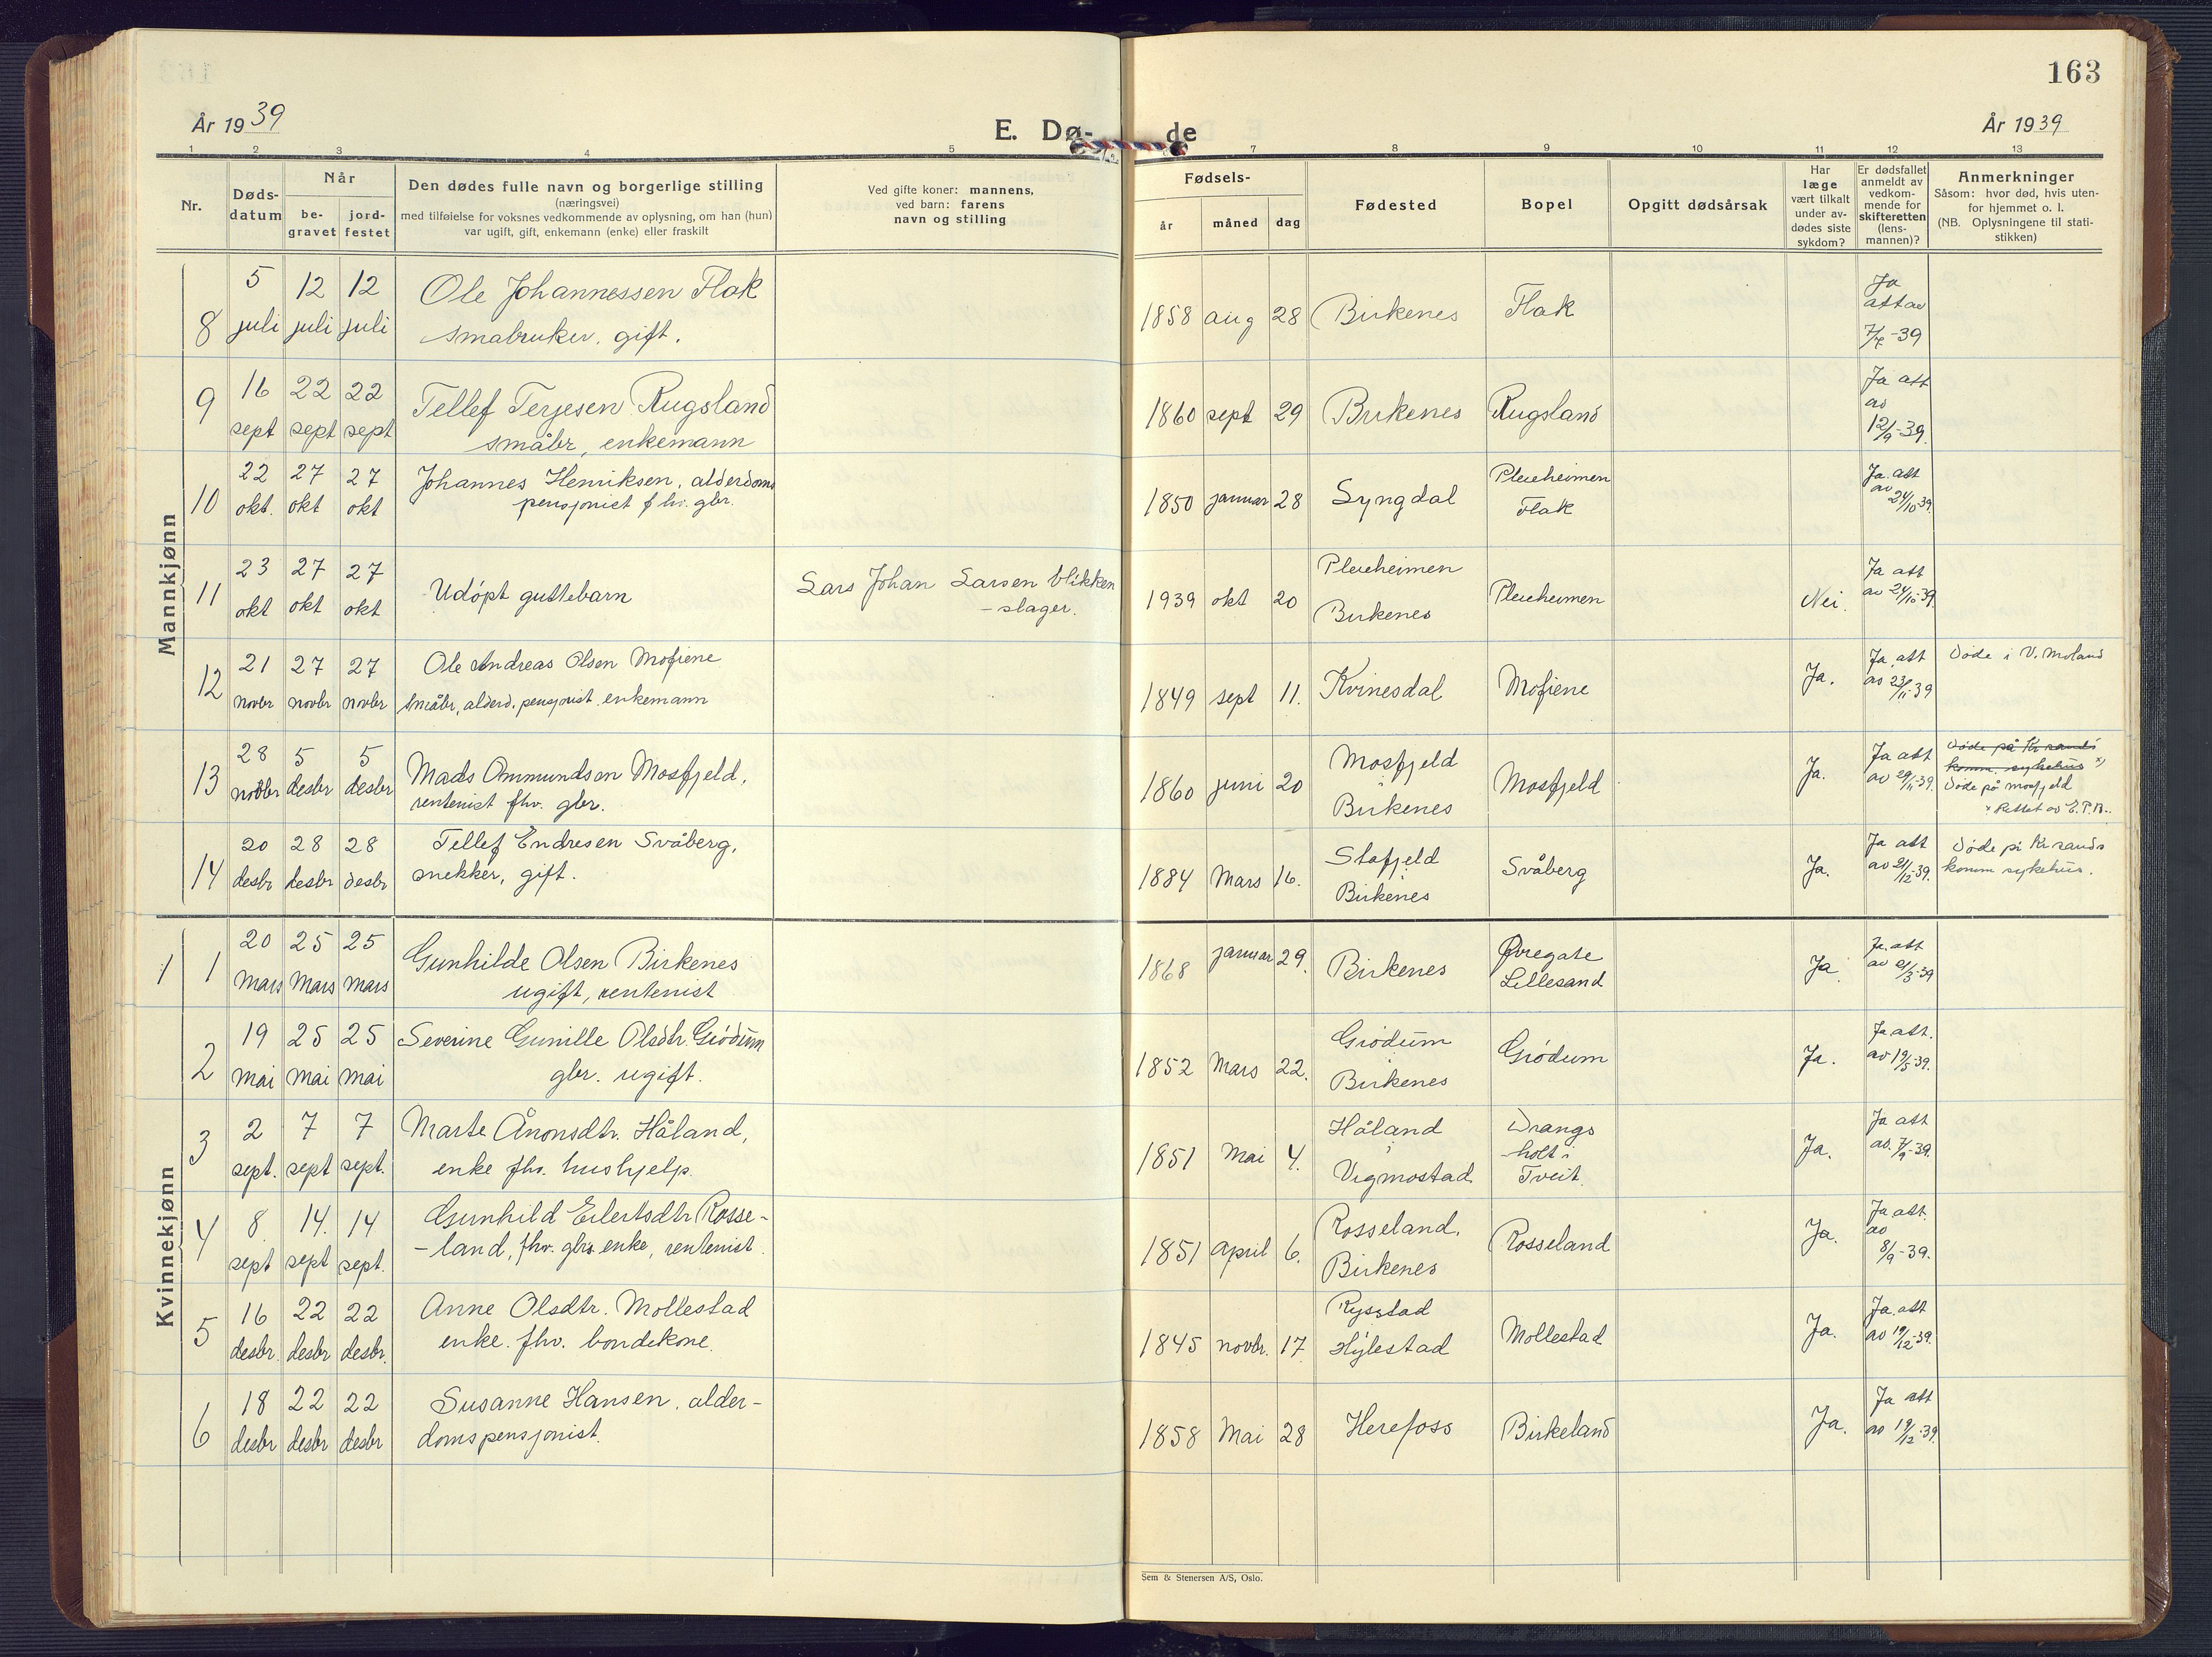 163
År 1939
E. Dø-
de
År 1939
1 2 3 4 5 7 8 9 10 11 12 13
Nr.
Døds-
datum
Når
be-
gravet
jord-
festet
Den dødes fulle navn og borgerlige stilling
(næringsvei)
med tilføielse for voksnes vedkommende av oplysning, om han (hun)
var ugift, gift, enkemann (enke) eller fraskilt
Ved gifte koner: mannens,
ved barn: farens
navn og stilling
Fødsels-
år måned dag
Fødested
Bopel
Opgitt dødsårsak
Har
læge
vært tilkalt
under av-
dødes siste
sykdom?
Er dødsfallet
anmeldt av
vedkom-
mende for
skifteretten
(lens-
mannen)?
Anmerkninger
Såsom: hvor død, hvis uten-
for hjemmet o. l.
(NB. Oplysningene til stati-
stikken)
Mannkjønn
8 5 juli 12 juli 12 juli Ole Johannessen Flak
småbruker, gift.
1858 aug 28 Birkenes Flak
Ja
att av
7/7-39
9 16 sept 22 sept 22 sept Tellef Terjesen Rugsland
småbr, enkemann
1860 sept 29 Birkenes Rugsland
Ja att
av
12/9-39.
10 22 okt. 27 okt 27 okt Johannes Henriksen, alderdoms
pensjonist fhv. gbr.
1850 januar 28 Lyngdal
Pleieheimen
Flak
Ja. att
av
24/10-39.
11 23 okt 27 okt 27 okt Udøpt guttebarn
Lars Johan Larsen blikken
-slager.
1939 okt 20
Pleieheimen
Birkenes
Pleieheimen
Nei.
Ja att
av 24/10-39.
12 21 novbr 27 novbr 27 novbr Ole Andreas Olsen Mofiene
småbr, alderd. pensjonist enkemann
1849 sept 11. Kvinesdal Mofiene Ja.
Ja. att
av 23/11-39
Døde i V. Moland
13 28 novbr 5 desbr 5 desbr Mads Ommundsen Mosfjeld,
rentenist fhv. gbr.
1860 juni 20
Mosfjeld
Birkenes
Mosfjeld
Ja.
Ja att
av 29/11-39.
Døde på Kr.sands
komm. sykehus x)
Døde på Mosfjeld
x Rettet av E.T.B..
14 20 desbr 28 desbr 28 desbr Tellef Endresen Svåberg,
snekker, gift.
1884 Mars 16.
Stafjeld
Birkenes
Svåberg
Ja.
Ja att
av 21/12-39.
Døde på Kr.sands
komm sykehus.
Kvinnekjønn
1 1 20 Mars 25 Mars 25 Mars Gunhilde Olsen Birkenes
ugift, rentenist
1868 januar 29. Birkenes
Øvregate
Lillesand
Ja
Ja. att
av 21/3-39
2 19 mai 25 mai 25 mai Severine Gunille Olsdtr Grødum
gbr. ugift.
1852 Mars 22.
Grødum
Birkenes
Grødum
Ja.
Ja. att.
av 19/5-39.
3 2 sept. 7 sept 7 sept. Marte Ånonsdtr. Håland,
enke fhv. hushjelp.
1851 Mai 4.
Håland
i
Vigmostad
Drangs
-holt i
Tveit.
Ja.
Ja att
av. 7/9-39.
4 8. sept 14. sept 14 sept. Gunhild Eilertsdtr Rosse-
-land, fhv. gbrs enke, rentenist.
1851 April 6.
Rosseland,
Birkenes
Rosseland
Ja.
Ja att.
av
8/9-39.
5 16 desbr. 22 desbr 22 desbr. Anne Olsdtr. Mollestad
enke. fhv. bondekone.
1845 novbr. 17
Rysstad
Hylestad
Mollestad
Ja.
Ja. att
av 19/12-39.
6 18 desbr 22 desbr 22 desbr Susanne Hansen, alder-
domspensjonist.
1858 Mai 28 Herefoss Birkeland Ja.
Ja att
av 19/12-39.
Sem & Stenersen A/S, Oslo.